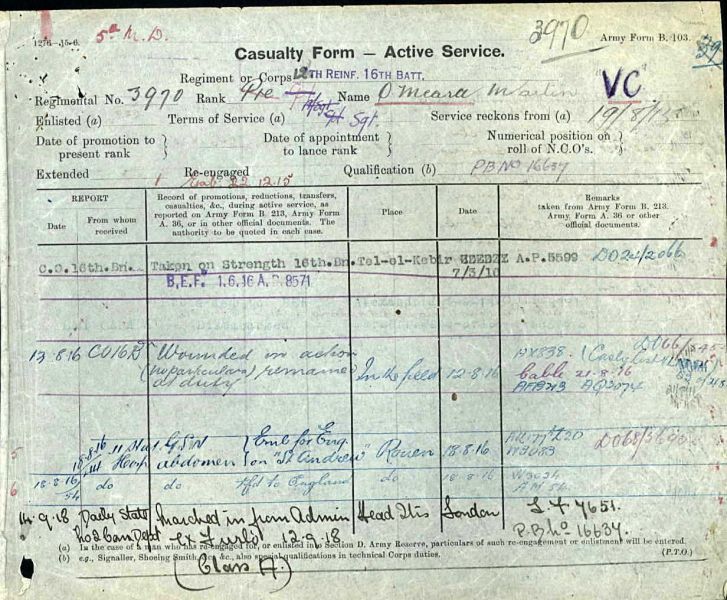 5th M.D.
3970
1276—15-6.
Army Form B. 103.
Casualty Form — Active Service.
Regiment or Corps 12TH REINF. 16TH BATT.
Regimental No. 3970 Rank Pte Sgt Name O'Meara Martin VC
Enlisted (a) Terms of Service (a) Service reckons from (a) 19/8/15
Date of promotion to present rank } Date of appointment to lance rank } Numerical position on roll of N.C.O's. }
Extended Re-engaged Qualification (b) P.B No 16634
22.12.15
REPORT
Date
From whom received
Record of promotions, reductions, transfers, casualties, &c., during active service, as reported on Army Form B. 213, Army Form A. 36, or in other official documents. The authority to be quoted in each case.
Place
Date
Remarks
taken from Army Form B. 213, Army Form A. 36 or other official documents.
C.O.16th.Bn. Taken on Strength 16th.Bn. Tel-el-Kebir A.P.5599 DO 22/2066
7/3/16
B.E.F. 1.6.16 A.P. 8571
13.8.16 CO 16 B Wounded in action
(no particulars) remained at duty In the field 12.8.16
cable 21.8.16
AFB213 AQ2074
18.8.16 11 Stat Hosp G.S.W abdomen { Emb for Eng. on "St Andrew" Rouen 18.8.16 W3083
5
18.8.16 do do tfd to England do 18.8.16 W3034
6
14.9.18 Daily State No 2 Com. Dept Marched in from Admin Head Qtrs London L.F 4651.
ex Furlo' 12.9.18 P.B. No 16634.
(Class A.)
(a) In the case of a man who has re-engaged for, or enlisted into Section D. Army Reserve, particulars of such re-engagement or enlistment will be entered.
(b) e.g., Signaller, Shoeing Smith, &c., &c., also special qualifications in technical Corps duties. (P.T.O.)